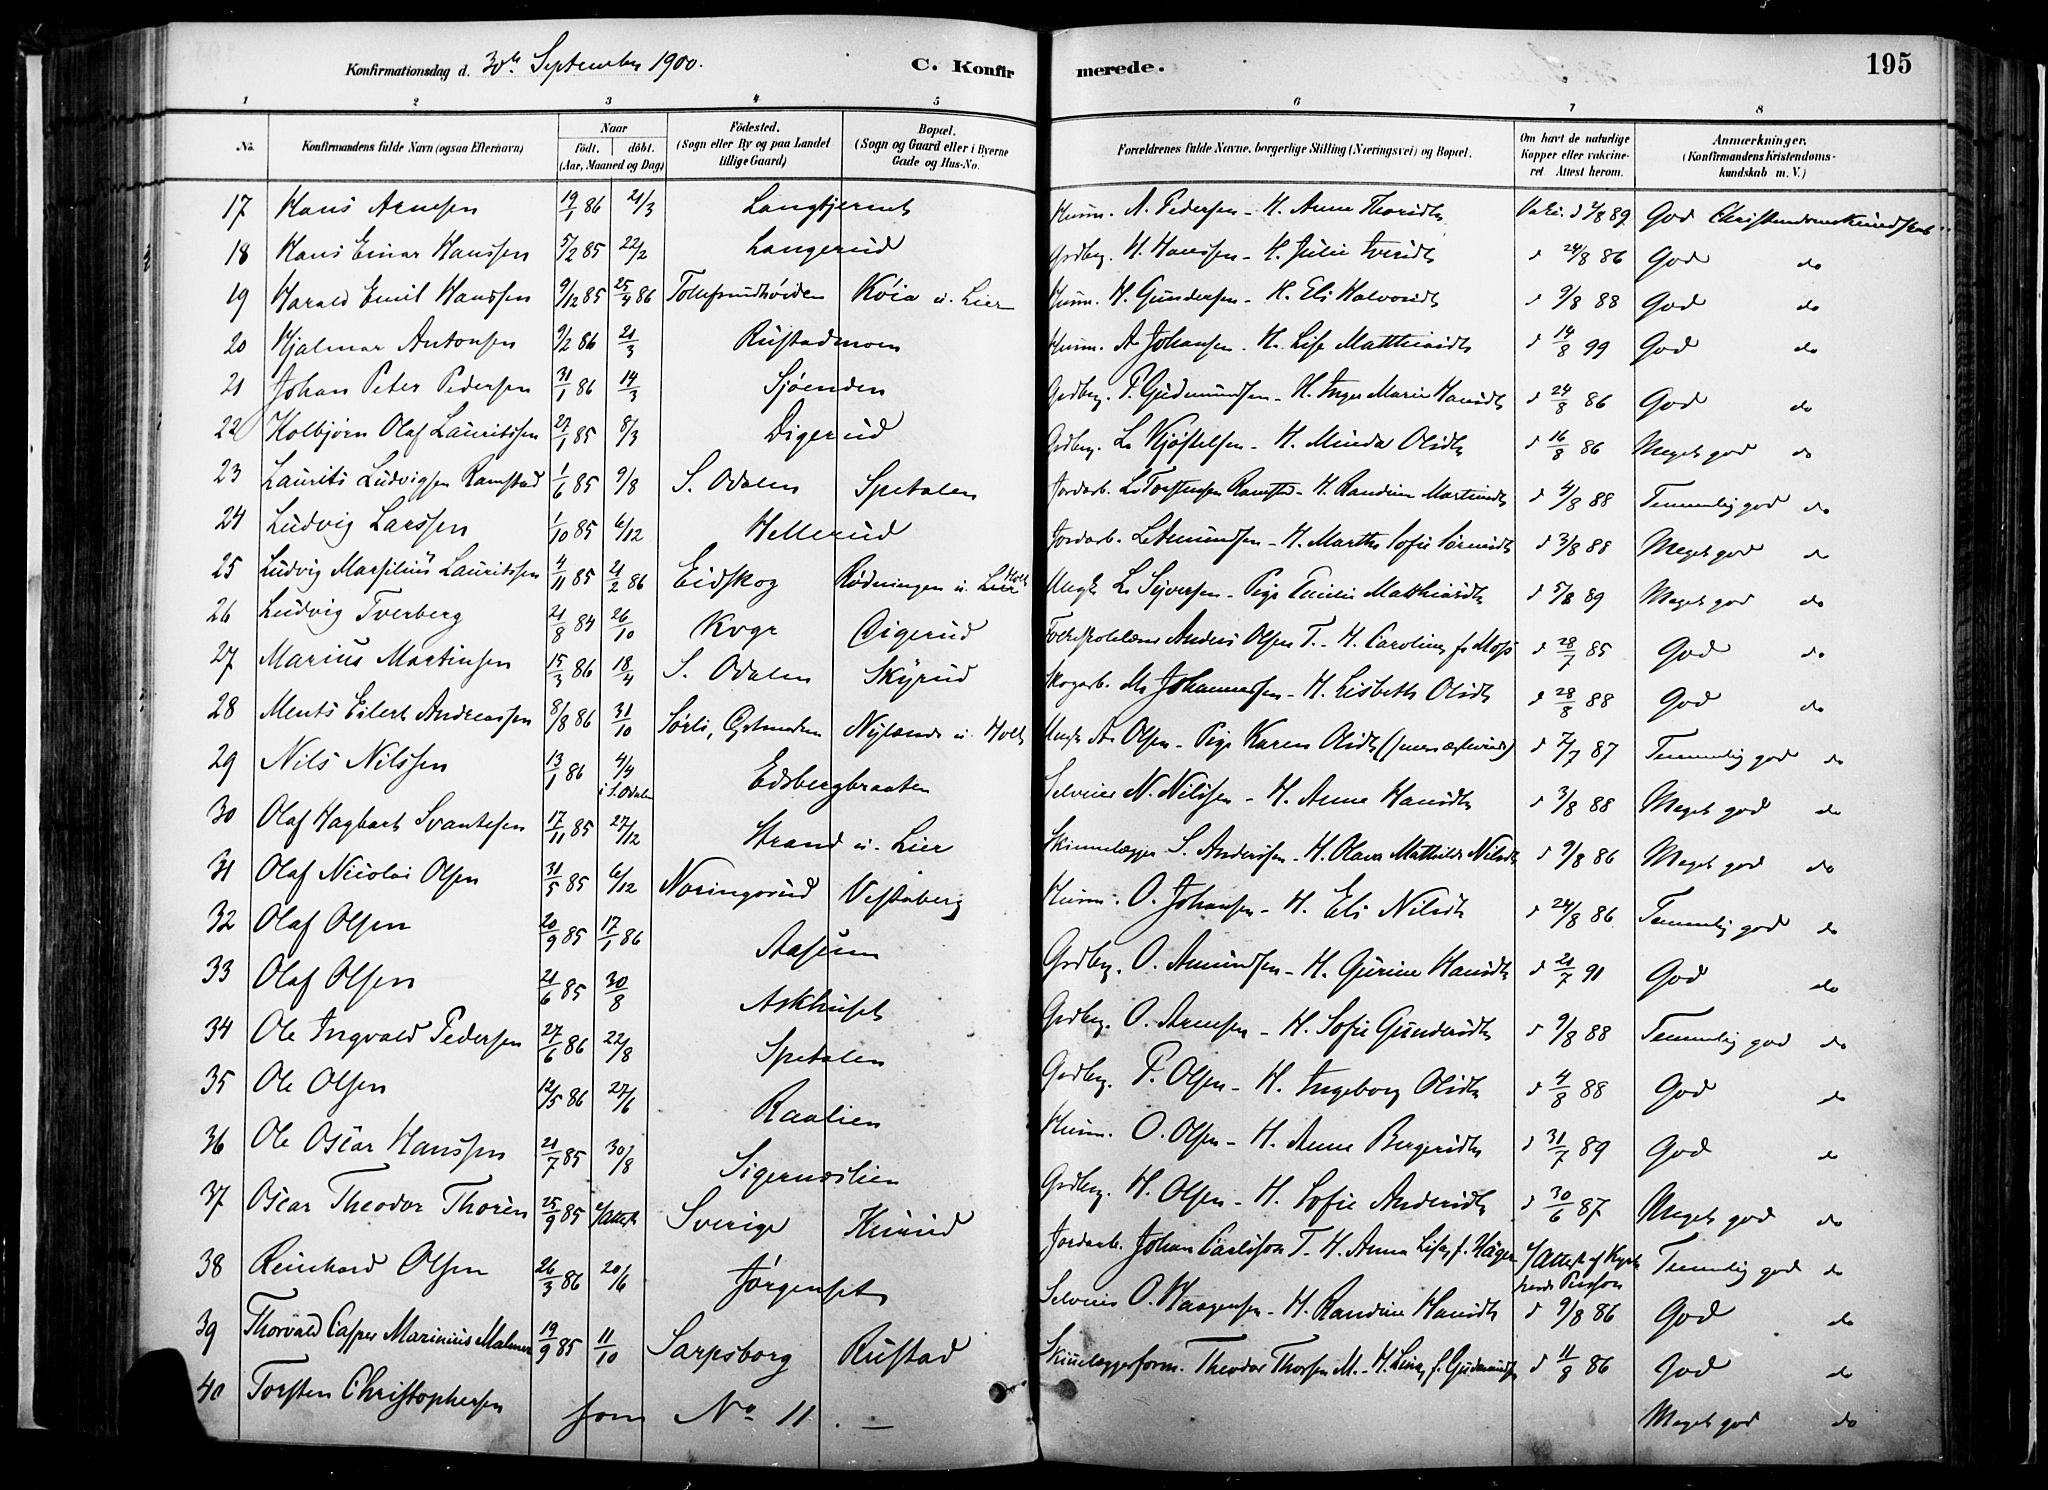 Konfirmationsdag d. 30te September 1900. C. Konfirmerede. 195
1 2 3 4 5 6 7 8
No. Konfirmandens fulde Navn (ogsaa Efternavn) Naar födt. döbt. (Aar, Maaned og Dag) Födested. (Sogn eller By og paa Landet tillige Gaard) Bopæl. (Sogn og Gaard eller i Byerne Gade og Hus-No. Forældrenes fulde Navne, borgerlige Stilling (Næringsvei) og Bopæl. Om havt de naturlige Kopper eller vakcineret Attest herom. Anmærkninger. (Konfirmandens Kristendomskundskab m. V.)
17 Hans Arnesen 19/1 86 21/3 Langtjernet Husm. A. Pedersen - H. Anne Thorsdtr Vakc. d 2/8 89 God Christendomskundskab
18 Hans Einar Hanssen 5/2 85 22/2 Langerud Grdbrg. H. Hanssen - H. Julie Iversdtr d 24/8 86 God do
19 Harald Emil Hanssen 9/12 85 25/4 86 Tollefsrudhöiden Köia u. Lier Husm. H. Gundersen - H. Eli Halvorsdtr d 9/8 88 God do
20 Hjalmar Antonsen 9/2 86 21/3 Rustadmoen Husm. A. Johansen - H. Lise Matthiasdtr d 14/8 99 God do
21 Johan Peter Pedersen 31/1 86 14/3 Sjøenden Grdbrg. P. Gudmundsen - H. Inger Marie Hansdtr d 24/8 86 God do
22 Kolbjörn Olaf Lauritssen 27/1 85 8/3 Digerud Grdbrg. L. Kjöstelsen - H. Minda Olsdtr d 16/8 86 Meget god do
23 Laurits Ludvigsen Ramstad 1/6 85 9/8 S. Odalen Spetalen Jordarb. L. Torstensen Ramstad - H. Randine Martinsdtr d 4/8 88 Temmelig god do
24 Ludvig Larssen 1/10 85 6/12 Hellerud Jordarb. L. Amundsen - H. Marthe Sofie Sörensdtr d 3/8 88 Meget god do
25 Ludvig Marsilius Lauritssen 4/11 85 21/2 86 Eidskog Rödningen u. Holt Ungk. L. Syversen - Pige Emilie Matthiasdtr d 5/8 89 Meget god do
26 Ludvig Tverberg 21/8 84 26/10 Kvgr Digerud Folkeskolelærer Anders Olsen T. - H. Caroline f. Moss d 28/7 85 God do
27 Marius Martinsen 15/3 86 18/4 S. Odalen Skyrud Skogarb. M. Johannessen - H. Lisbeth Olsdtr d 28/8 88 God do
28 Ments Eilert Andreassen 8/8 86 31/10 Sörli, Östmarken Nyland u. Holt Ungk. A. Olsen - Pige Karen Olsdtr d 7/7 87 Temmelig god do
29 Nils Nilssen 13/1 86 4/4 i S. Odalen Edsbergbraaten Selveier N. Nilssen - H. Anne Hansdtr d 3/8 88 Meget god do
30 Olaf Hagbart Svantesen 17/11 85 27/12 Strand u. Lier Skinnelægger S. Anderssen - H. Olava Mathilde Nilsdtr d 9/8 86 Meget god do
31 Olaf Nicolai Olsen 31/5 85 6/12 Noringsrud Vestaberg Husm. O. Johansen - H. Eli Nilsdtr d 24/8 86 Temmelig god do
32 Olaf Olsen 20/9 85 17/1 86 Aasum Grdbrg. O. Amundsen - H. Gurine Hansdtr d 21/7 91 God do
33 Olaf Olsen 21/6 85 30/8 Askhuset Grdbrg. O. Arnesen - H. Sofie Gundersdtr d 9/8 88 Temmelig god do
34 Ole Ingvald Pedersen 27/6 86 22/8 Spetalen Grdbrg. P. Olsen - H. Ingeborg Olsdtr d 4/8 88 God do
35 Ole Olsen 12/5 86 27/6 Raalien Husm. O. Olsen - H. Anne Bergersdtr d 31/7 89 God do
36 Ole Oscar Hanssen 21/7 85 30/8 Sigernæslien Grdbrg. H. Olsen - H. Sofie Andersdtr d 30/6 87 Meget god do
37 Oscar Theodor Thorén 25/9 85 e/Attest Sverige Kurud Jordarb. Johan Carlsson T. - H. Anna Lisa f. Häger e/Attest af Kyrkoherde Persson Temmelig god do
38 Reinhard Olsen 26/3 86 20/6 Jørgenset Selveier O. Haagensen - H. Randine Hansdtr d 9/8 86 God do
39 Thorvald Casper Marinius Malmer 19/9 85 11/10 Sarpsborg Rustad Skinnelæggerform. Theodor Thorsen M. - H. Lina f. Gudmundsen d 11/8 86 God do
40 Torsten Christophersen som No 11. — Meget god do